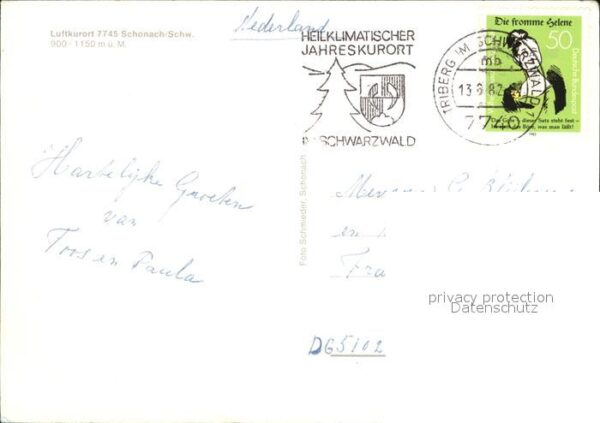 Luftkurort 7745 Schonach/Schw.
900 - 1150 m ü. M.
Nederland
HEILKLIMATISCHER
JAHRESKURORT
SCHWARZWALD
TRIBERG IM SCHWARZWALD 1
mb
13.8.82
7740
Die fromme Helene
50
Deutsche Bundespost
Das Gute – dieser Satz steht fest –
ist stets das Böse, was man läßt!
Hartelijke Groeten
van
Toos en Paula
Foto Schmieder, Schonach
en
Fra
privacy protection
Datenschutz
DG5102